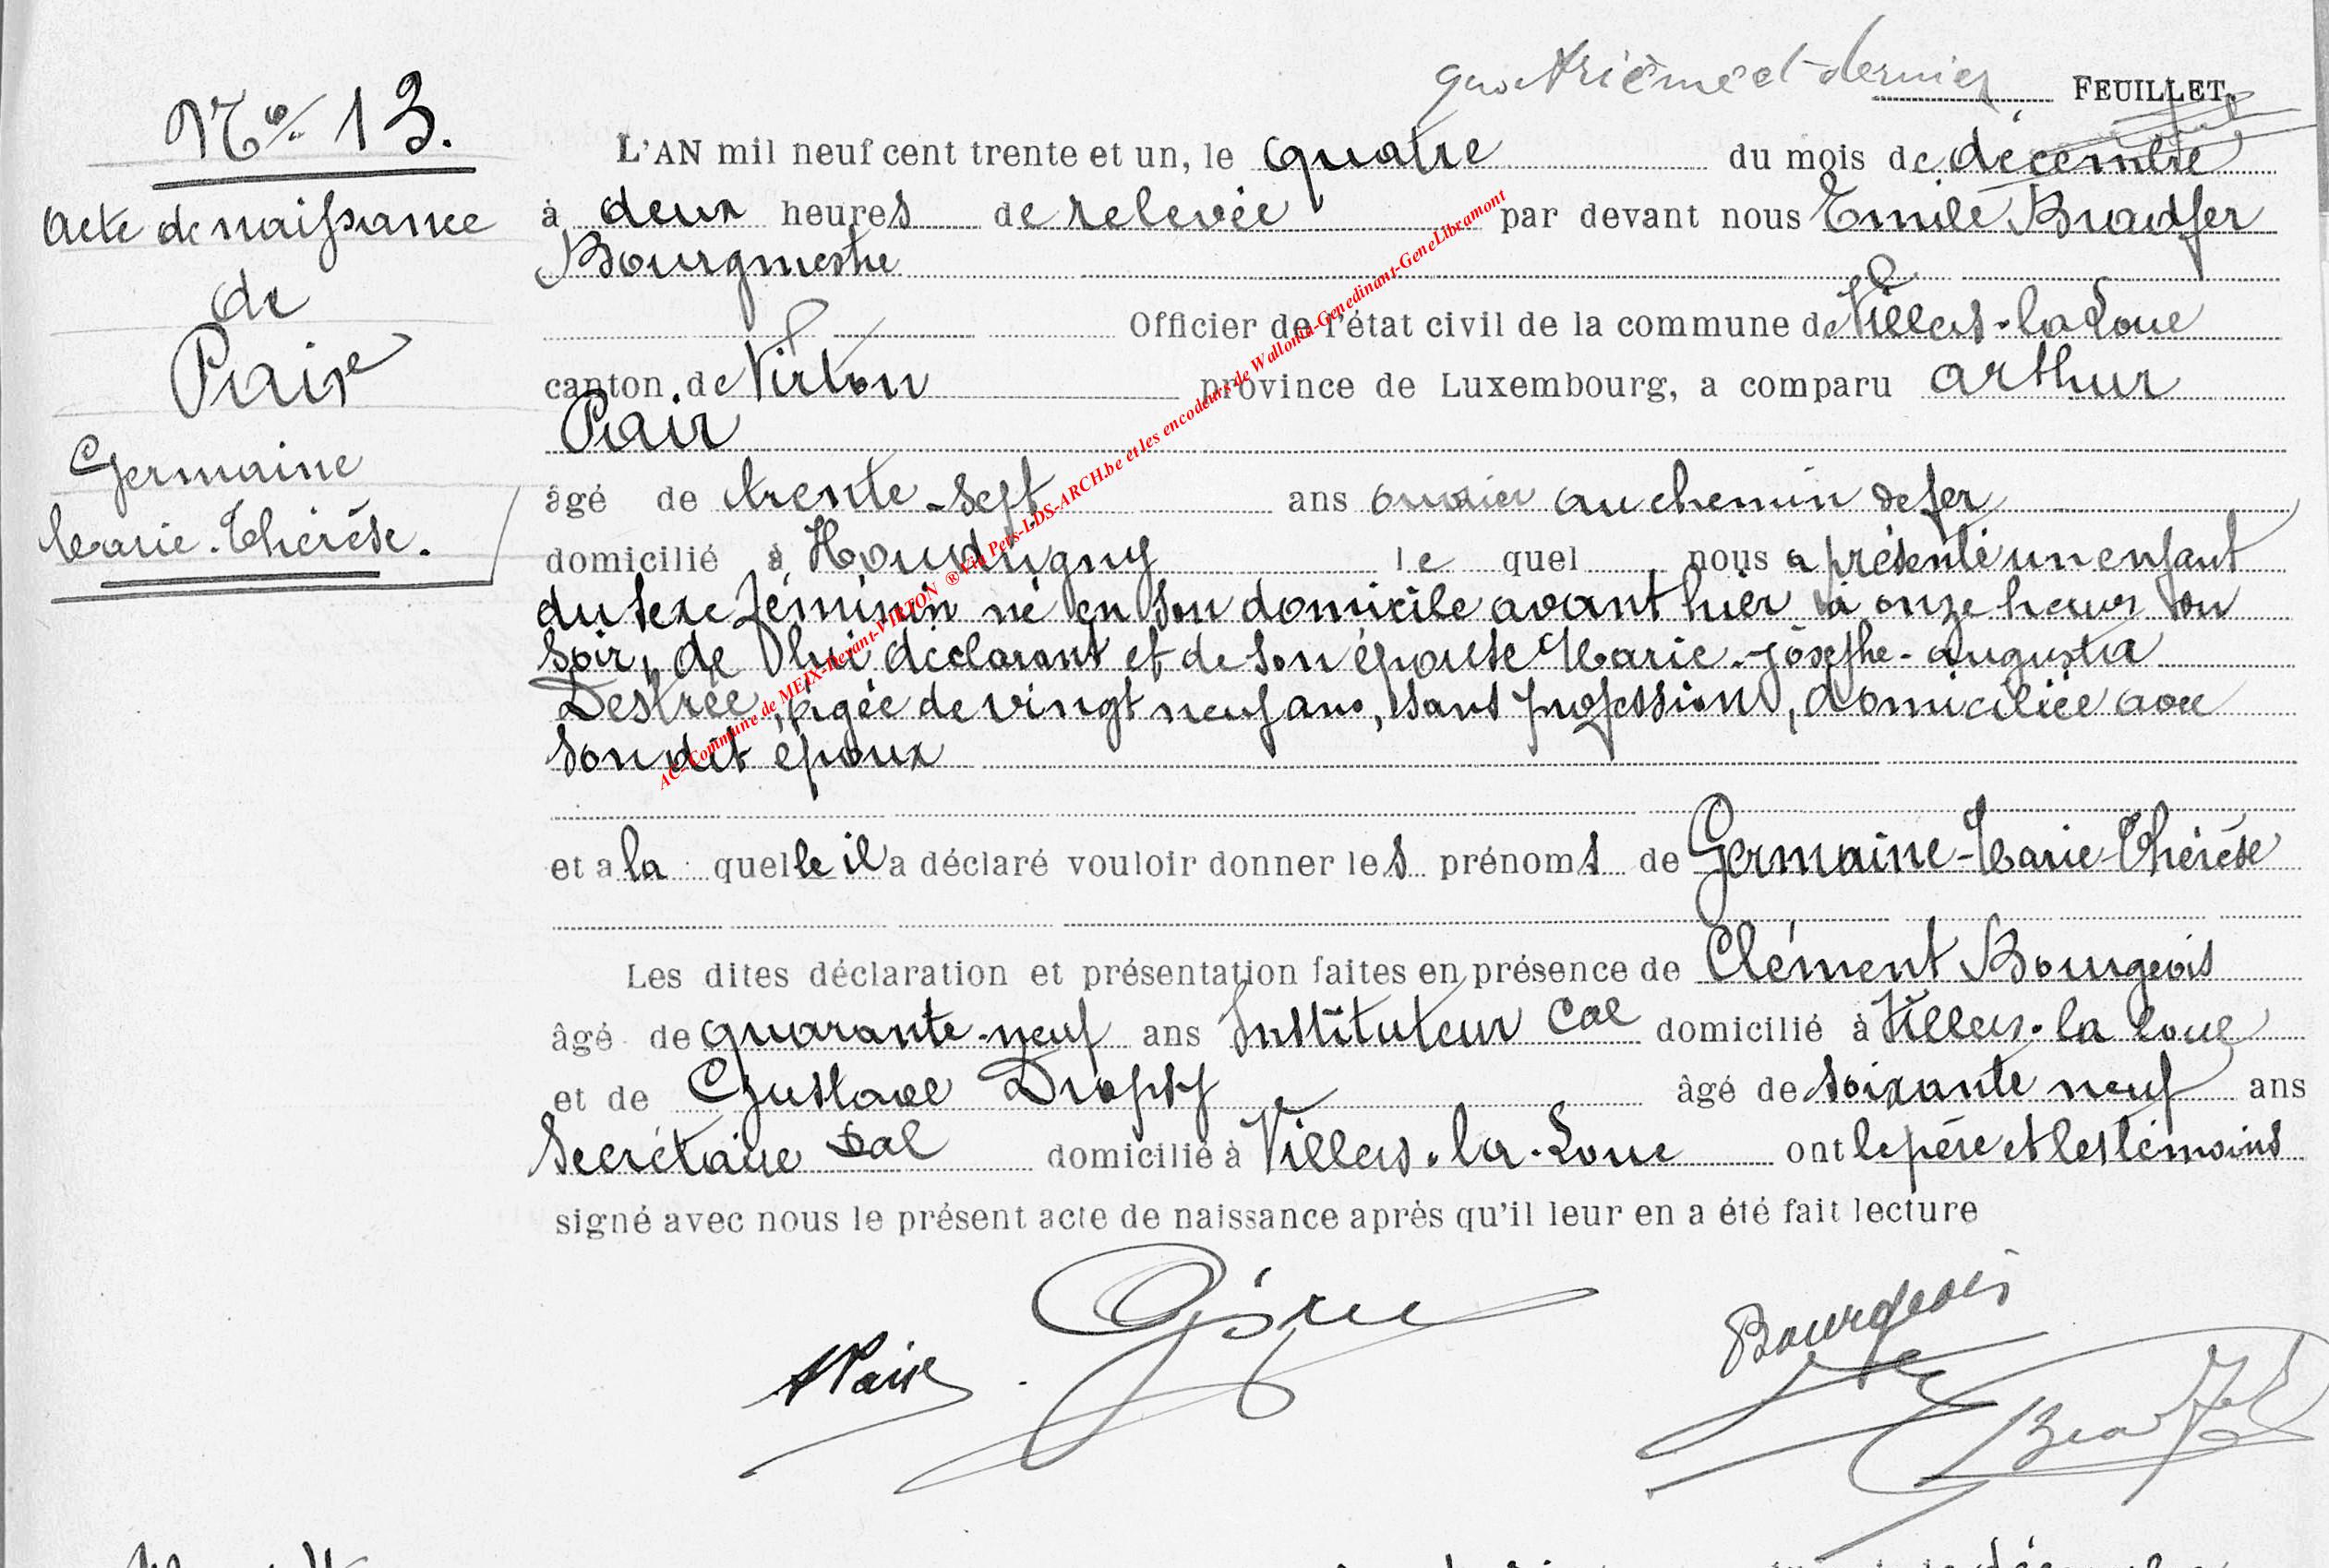 quatrième et dernier FEUILLET.
N° 13.
Acte de naissance
de
Germaine
Marie-Thérèse.
L'AN mil neuf cent trente et un, le quatre du mois de décembre
à deux heures de relevée par devant nous Emile Bradfer
Bourgmestre
Officier de l'état civil de la commune de Villers-la-Loue
canton de Virton province de Luxembourg, a comparu Arthur
âgé de trente-sept ans ouvrier au chemin de fer
domicilié à Houdrigny le quel nous a présenté un enfant
du sexe féminin né en son domicile avant hier à onze heures du
soir, de lui déclarant et de son épouse Marie-Josèphe-Augusta
Destrée, âgée de vingt neuf ans, sans profession, domiciliée avec
son dit époux
et a la quelle il a déclaré vouloir donner les prénoms de Germaine-Marie-Thérèse
Les dites déclaration et présentation faites en présence de Clément Bourgeois
âgé de quarante-neuf ans Instituteur Cal domicilié à Villers-la-Loue
et de Gustave Dropsy âgé de soixante neuf ans
Secrétaire Cal domicilié à Villers-la-Loue ont le père et les témoins
signé avec nous le présent acte de naissance après qu'il leur en a été fait lecture
Bourgeois
Bradfer
AC-Commune de MEIX-Devant-VIRTON ® Via Pers-LDS-ARCH.be et les encodeurs de Wallonia-Genedinant-GeneLibramont